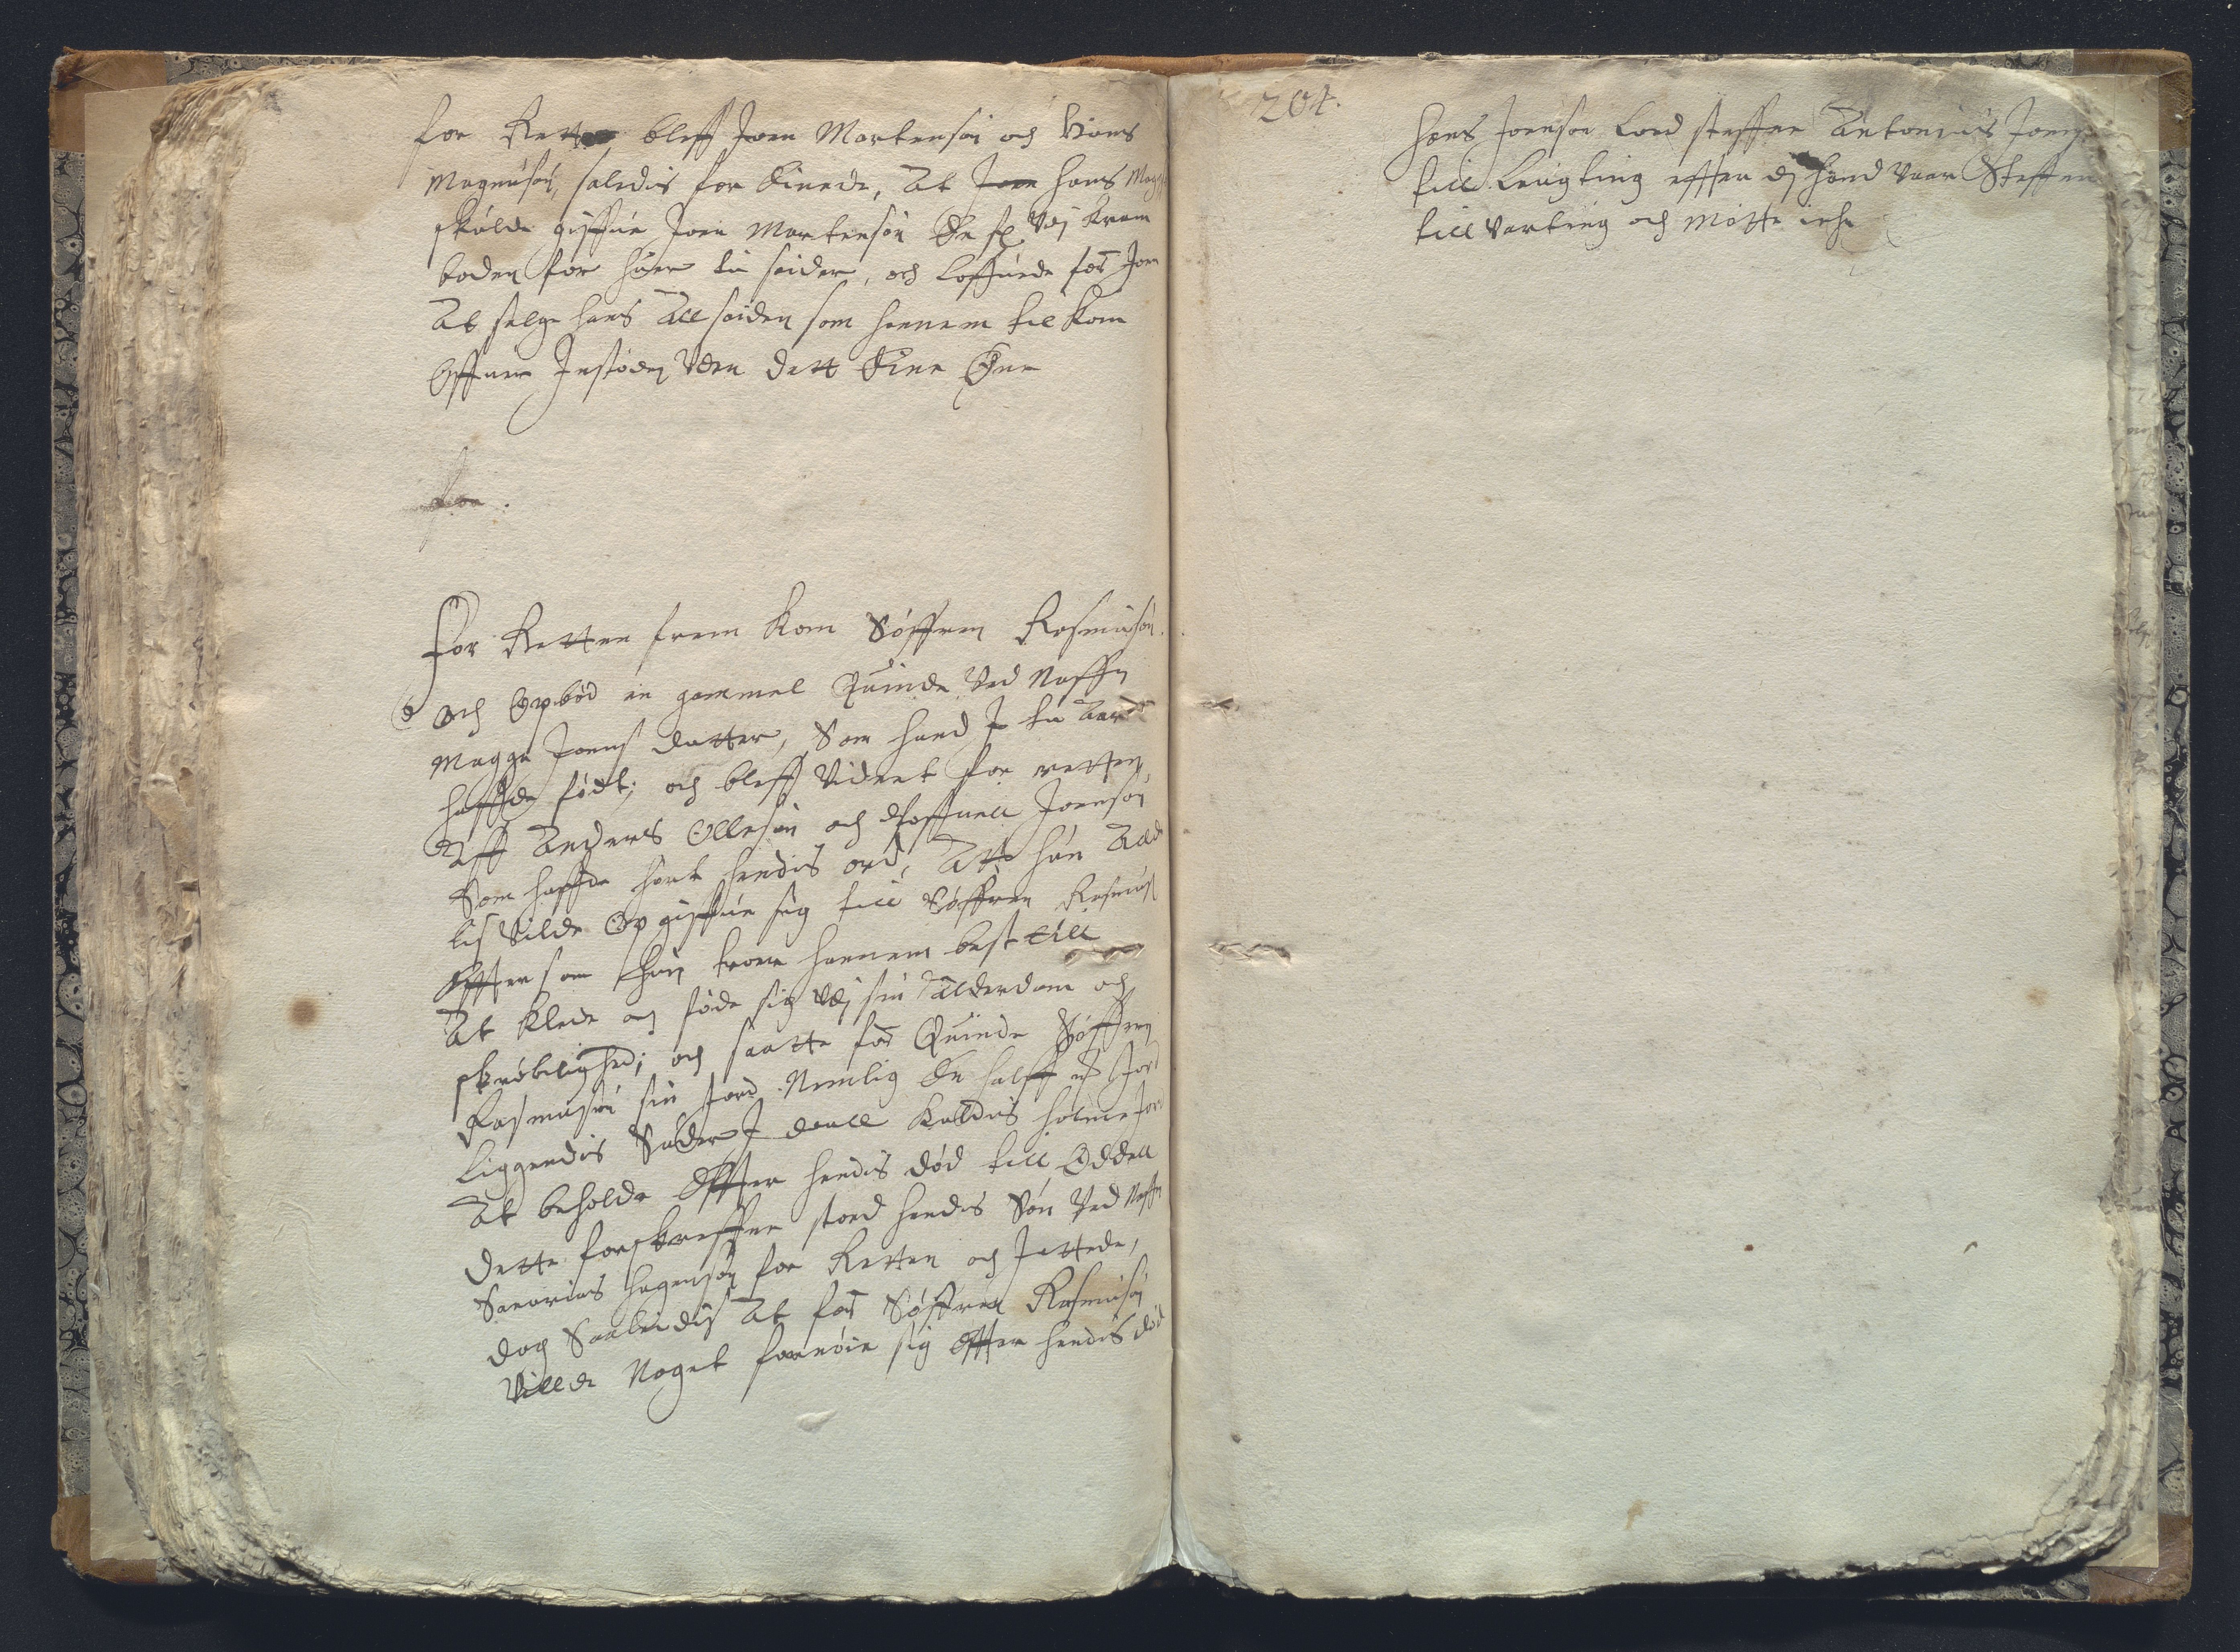 for Retten bleff Joen Mortensøn och Hans
Magnusøn, saledis for Einede, At Joen Hans Mag
skulde giffue Joen Mortensøn En sk. Vdj Kram
boden for huer lia seider, och loffuede for Joen
At selge hans All seiden som hannem til kom
Offuer Jnstøden Vden dett Eine Øre
for
For Retten frem kom Søffren Rasmusøn
och Opbød en gammel Quinde Ved Naffn
Magga Joens datter, Som hand J tu Aar
haffde født; och bleff Vidnet for retten,
Aff Anders Ollesøn och Joensøn
Som haffde hørt hendis ord, Att hun Alde
lis Vilde Op giffue sig till Søffren Rasmus
Effter som hun troer hannem best till
At klede og føde sig Vdj sin Alderdom och
skrøbelighed; och saatte for Quinde Søffren
Rasmusøn sin Jord Nemlig En halff Jord
liggendis Sunder J daall kaldis holme Jord
At beholde Effter hendis død till Oddell
dette forskreffne stoed hendis Søn Ved Naffn
Sacarias Hagensøn for Retten och Jattede,
dog Saaledis At for Søffren Rasmusøn
Villde Noget fornøie sig Effter hendis død
204.
Hans Joensøn loed steffne Antonius Joens
till Leugting effter dj hand Vaar Steffnet
till Varting och møtte iche